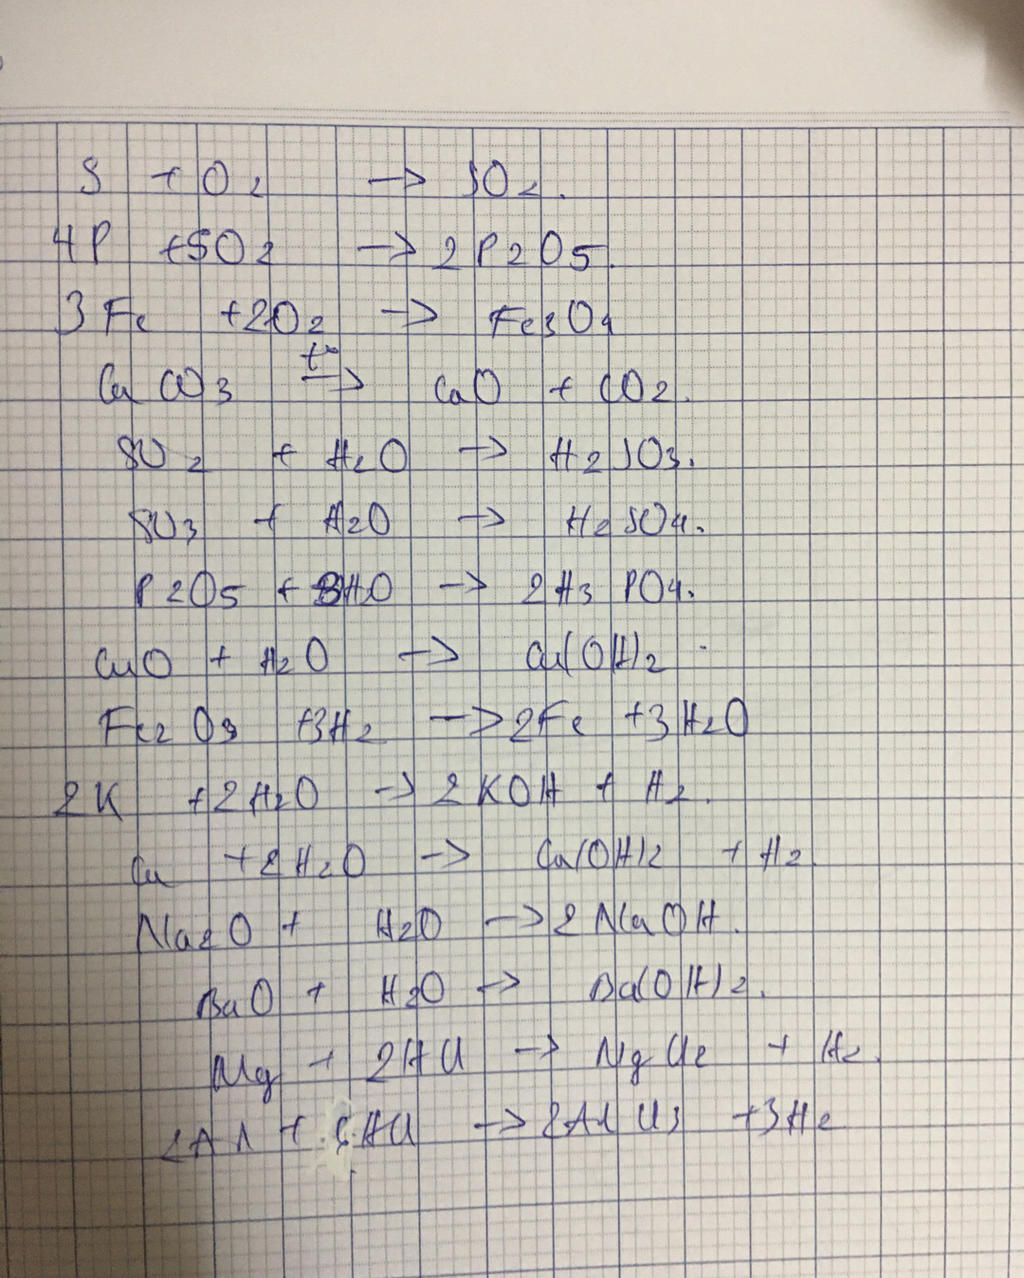 S + O2 → SO2.
4P + 5O2 → 2P2O5.
3Fe + 2O2 → Fe3O4
CaCO3 t° → CaO + CO2.
SO2 + H2O → H2SO3.
SO3 + H2O → H2SO4.
P2O5 + 3H2O → 2H3PO4.
CuO + H2O → Cu(OH)2
Fe2O3 + 3H2 → 2Fe + 3H2O
2K + 2H2O → 2KOH + H2.
Ca + 2H2O → Ca(OH)2 + H2
Na2O + H2O → 2NaOH.
BaO + H2O → Ba(OH)2.
Mg + 2HCl → MgCl2 + H2.
2Al + 6HCl → 2AlCl3 + 3H2